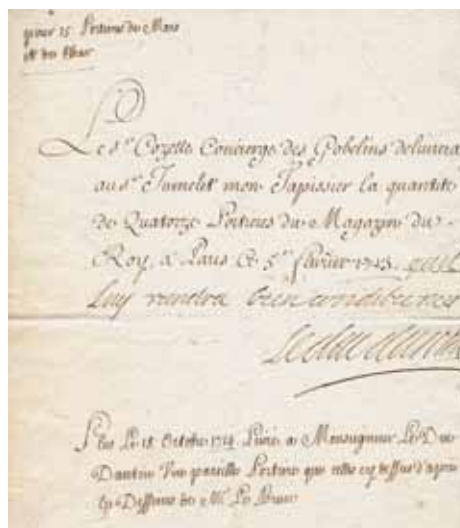 pour 15 Portieres du Mars
et du Char
Le s.r Cozette Concierge des Gobelins delivrera
au s.r Jumelet mon Tapissier la quantité
de Quatorze Portieres du Magazin du
Roy, a Paris Ce 5.e février 1713. quil
luy rendra bien
Le duc
Plus Le 18 Octobre 1714 Livré a Monseigneur Le Duc
Dantin Une pareille Portiere que celle cy dessus d'après
les Desseins de Mr. Le Brun